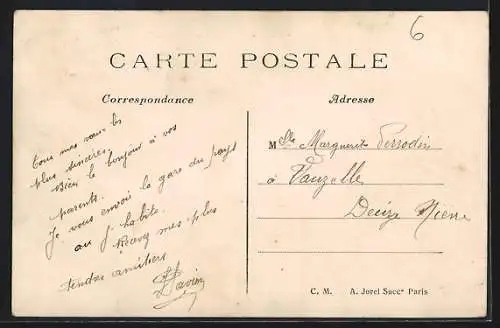 6
CARTE POSTALE
Correspondance
Adresse
tous mes vœux les
plus sincères.
Bien le bonjour à vos
parents.
Je vous envoi la gare du pays
ou j'habite.
Recevez mes plus
tendre amitiers
Mlle Marguerite Perrodin
à Vauzelle
Decize Nièvre
C. M. A. Jorel Succr Paris